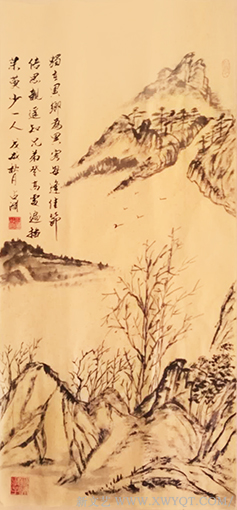 獨在異鄉為異客每逢佳節
倍思親遙知兄弟登高處遍插
茱萸少一人 戊戌秋月
WWW.XWYQT.COM